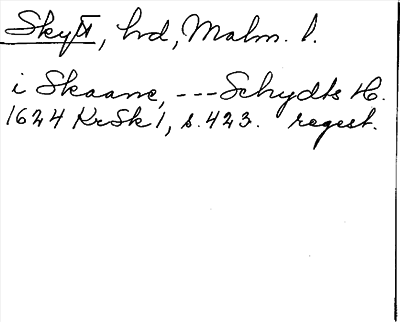 Skytt, hd, Malm. l.
i Skaane, ---Schydts H.
1624 KrSk 1, s. 423. regest.